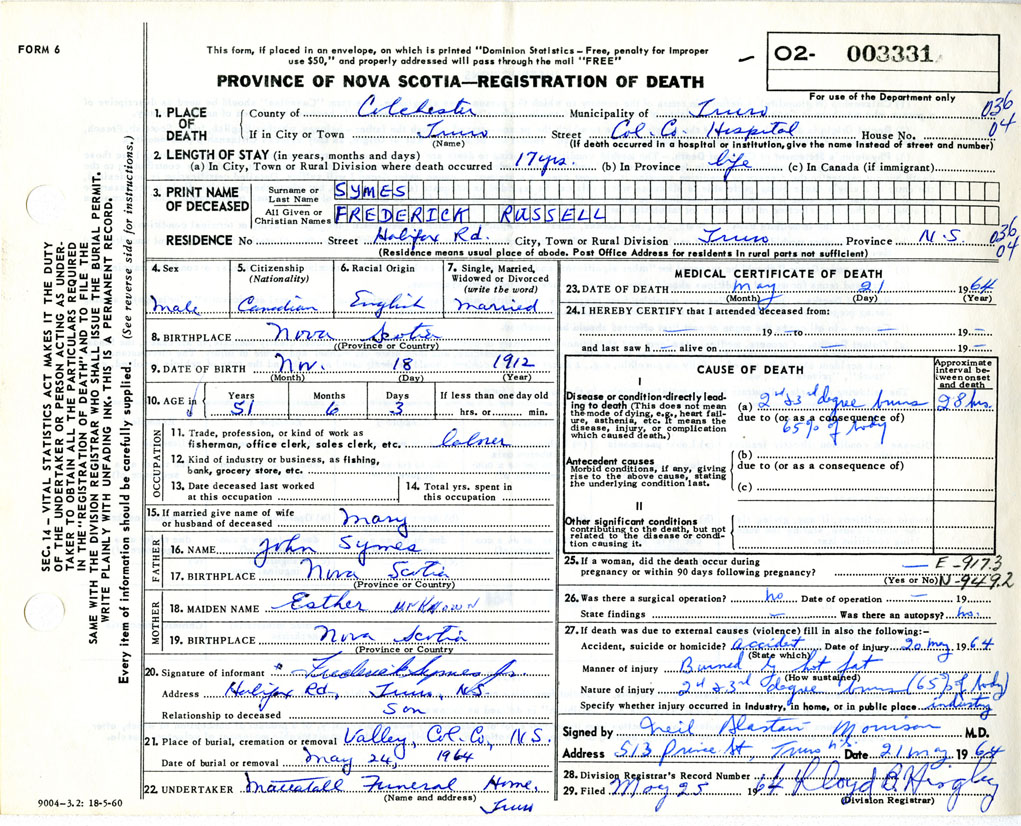 FORM 6
This form, if placed in an envelope, on which is printed "Dominion Statistics – Free, penalty for improper
use $50," and properly addressed will pass through the mail "FREE"
O2- 003331
For use of the Department only
PROVINCE OF NOVA SCOTIA—REGISTRATION OF DEATH
036
04
1. PLACE OF DEATH County of Colchester Municipality of Truro
If in City or Town Truro Street Col. Co. Hospital House No.
(Name) (If death occurred in a hospital or institution, give the name instead of street and number)
2. LENGTH OF STAY (in years, months and days)
(a) In City, Town or Rural Division where death occurred 17 yrs. (b) In Province life (c) In Canada (if immigrant)
3. PRINT NAME OF DECEASED Surname or Last Name SYMES
All Given or Christian Names FREDERICK RUSSELL
RESIDENCE No Street Halifax Rd. City, Town or Rural Division Truro Province N.S. 036
04
(Residence means usual place of abode. Post Office Address for residents in rural parts not sufficient)
SEC. 14 – VITAL STATISTICS ACT MAKES IT THE DUTY
OF THE UNDERTAKER OR PERSON ACTING AS UNDER-
TAKER TO OBTAIN ALL THE PARTICULARS REQUIRED
IN THE "REGISTRATION OF DEATH" AND TO FILE THE
SAME WITH THE DIVISION REGISTRAR WHO SHALL ISSUE THE BURIAL PERMIT.
WRITE PLAINLY WITH UNFADING INK. THIS IS A PERMANENT RECORD.
Every item of information should be carefully supplied. (See reverse side for instructions.)
4. Sex Male
5. Citizenship (Nationality) Canadian
6. Racial Origin English
7. Single, Married, Widowed or Divorced (write the word) married
8. BIRTHPLACE Nova Scotia
((Province or Country)
9. DATE OF BIRTH Nov. 18 1912
(Month) (Day) (Year)
10. AGE Years 51 Months 6 Days 3 If less than one day old
hrs. or min.
OCCUPATION
11. Trade, profession, or kind of work as
fisherman, office clerk, sales clerk, etc.
12. Kind of industry or business, as fishing,
bank, grocery store, etc.
13. Date deceased last worked
at this occupation
14. Total yrs. spent in
this occupation
15. If married give name of wife
or husband of deceased Mary
FATHER
16. NAME John Symes
17. BIRTHPLACE Nova Scotia
(Province or Country)
MOTHER
18. MAIDEN NAME Esther unknown
19. BIRTHPLACE Nova Scotia
(Province or Country)
20. Signature of informant Frederick Symes Jr.
Address Halifax Rd, Truro, N.S.
Relationship to deceased Son
21. Place of burial, cremation or removal Valley, Col. Co, N.S.
Date of burial or removal May 24, 1964
22. UNDERTAKER Mattatall Funeral Home,
(Name and address) Truro
9004-3.2: 18-5-60
MEDICAL CERTIFICATE OF DEATH
23. DATE OF DEATH May 21 1964
(Month) (Day) (Year)
24. I HEREBY CERTIFY that I attended deceased from:
— 19 – to — 19 –
and last saw h – alive on — 19 –
CAUSE OF DEATH
Approximate
interval be-
tween onset
and death
I
Disease or condition directly lead-
ing to death (This does not mean
the mode of dying, e.g., heart fail-
ure, asthenia, etc. It means the
disease, injury, or complication
which caused death.)
(a) 2nd & 3rd degree burns 28 hrs.
due to (or as a consequence of)
65% of body
Antecedent causes
Morbid conditions, if any, giving
rise to the above cause, stating
the underlying condition last.
(b)
due to (or as a consequence of)
(c)
II
Other significant conditions
contributing to the death, but not
related to the disease or condi-
tion causing it.
25. If a woman, did the death occur during
pregnancy or within 90 days following pregnancy? — E-917.3
(Yes or No) N-949.2
26. Was there a surgical operation? no Date of operation – 19
State findings — Was there an autopsy? no.
27. If death was due to external causes (violence) fill in also the following:–
Accident, suicide or homicide? accident Date of injury 20 May 1964
(State which)
Manner of injury Burned by hot fat
(How sustained)
Nature of injury 2nd & 3rd degree burns (65% of body)
Specify whether injury occurred in industry, in home, or in public place industry
Signed by Neil Alastair Morrison M.D.
Address 513 Prince St, Truro N.S. Date 21 May 1964
28. Division Registrar's Record Number
29. Filed May 25 1964 Lloyd
(Division Registrar)